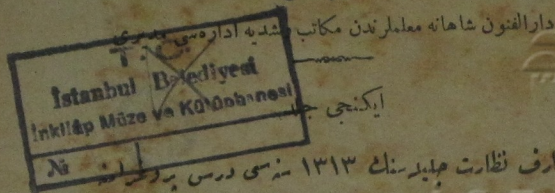 دارالفنون شاهانه معلملرندن مكاتب رشديه اداره‌سى مديرى
T. C.
İstanbul Belediyesi
İnkilâp Müze ve Kütüphanesi
№
ايكنجى جلد
نظارت جليله‌سنك ١٣١٣ سنه‌سى درس پروغرامنه